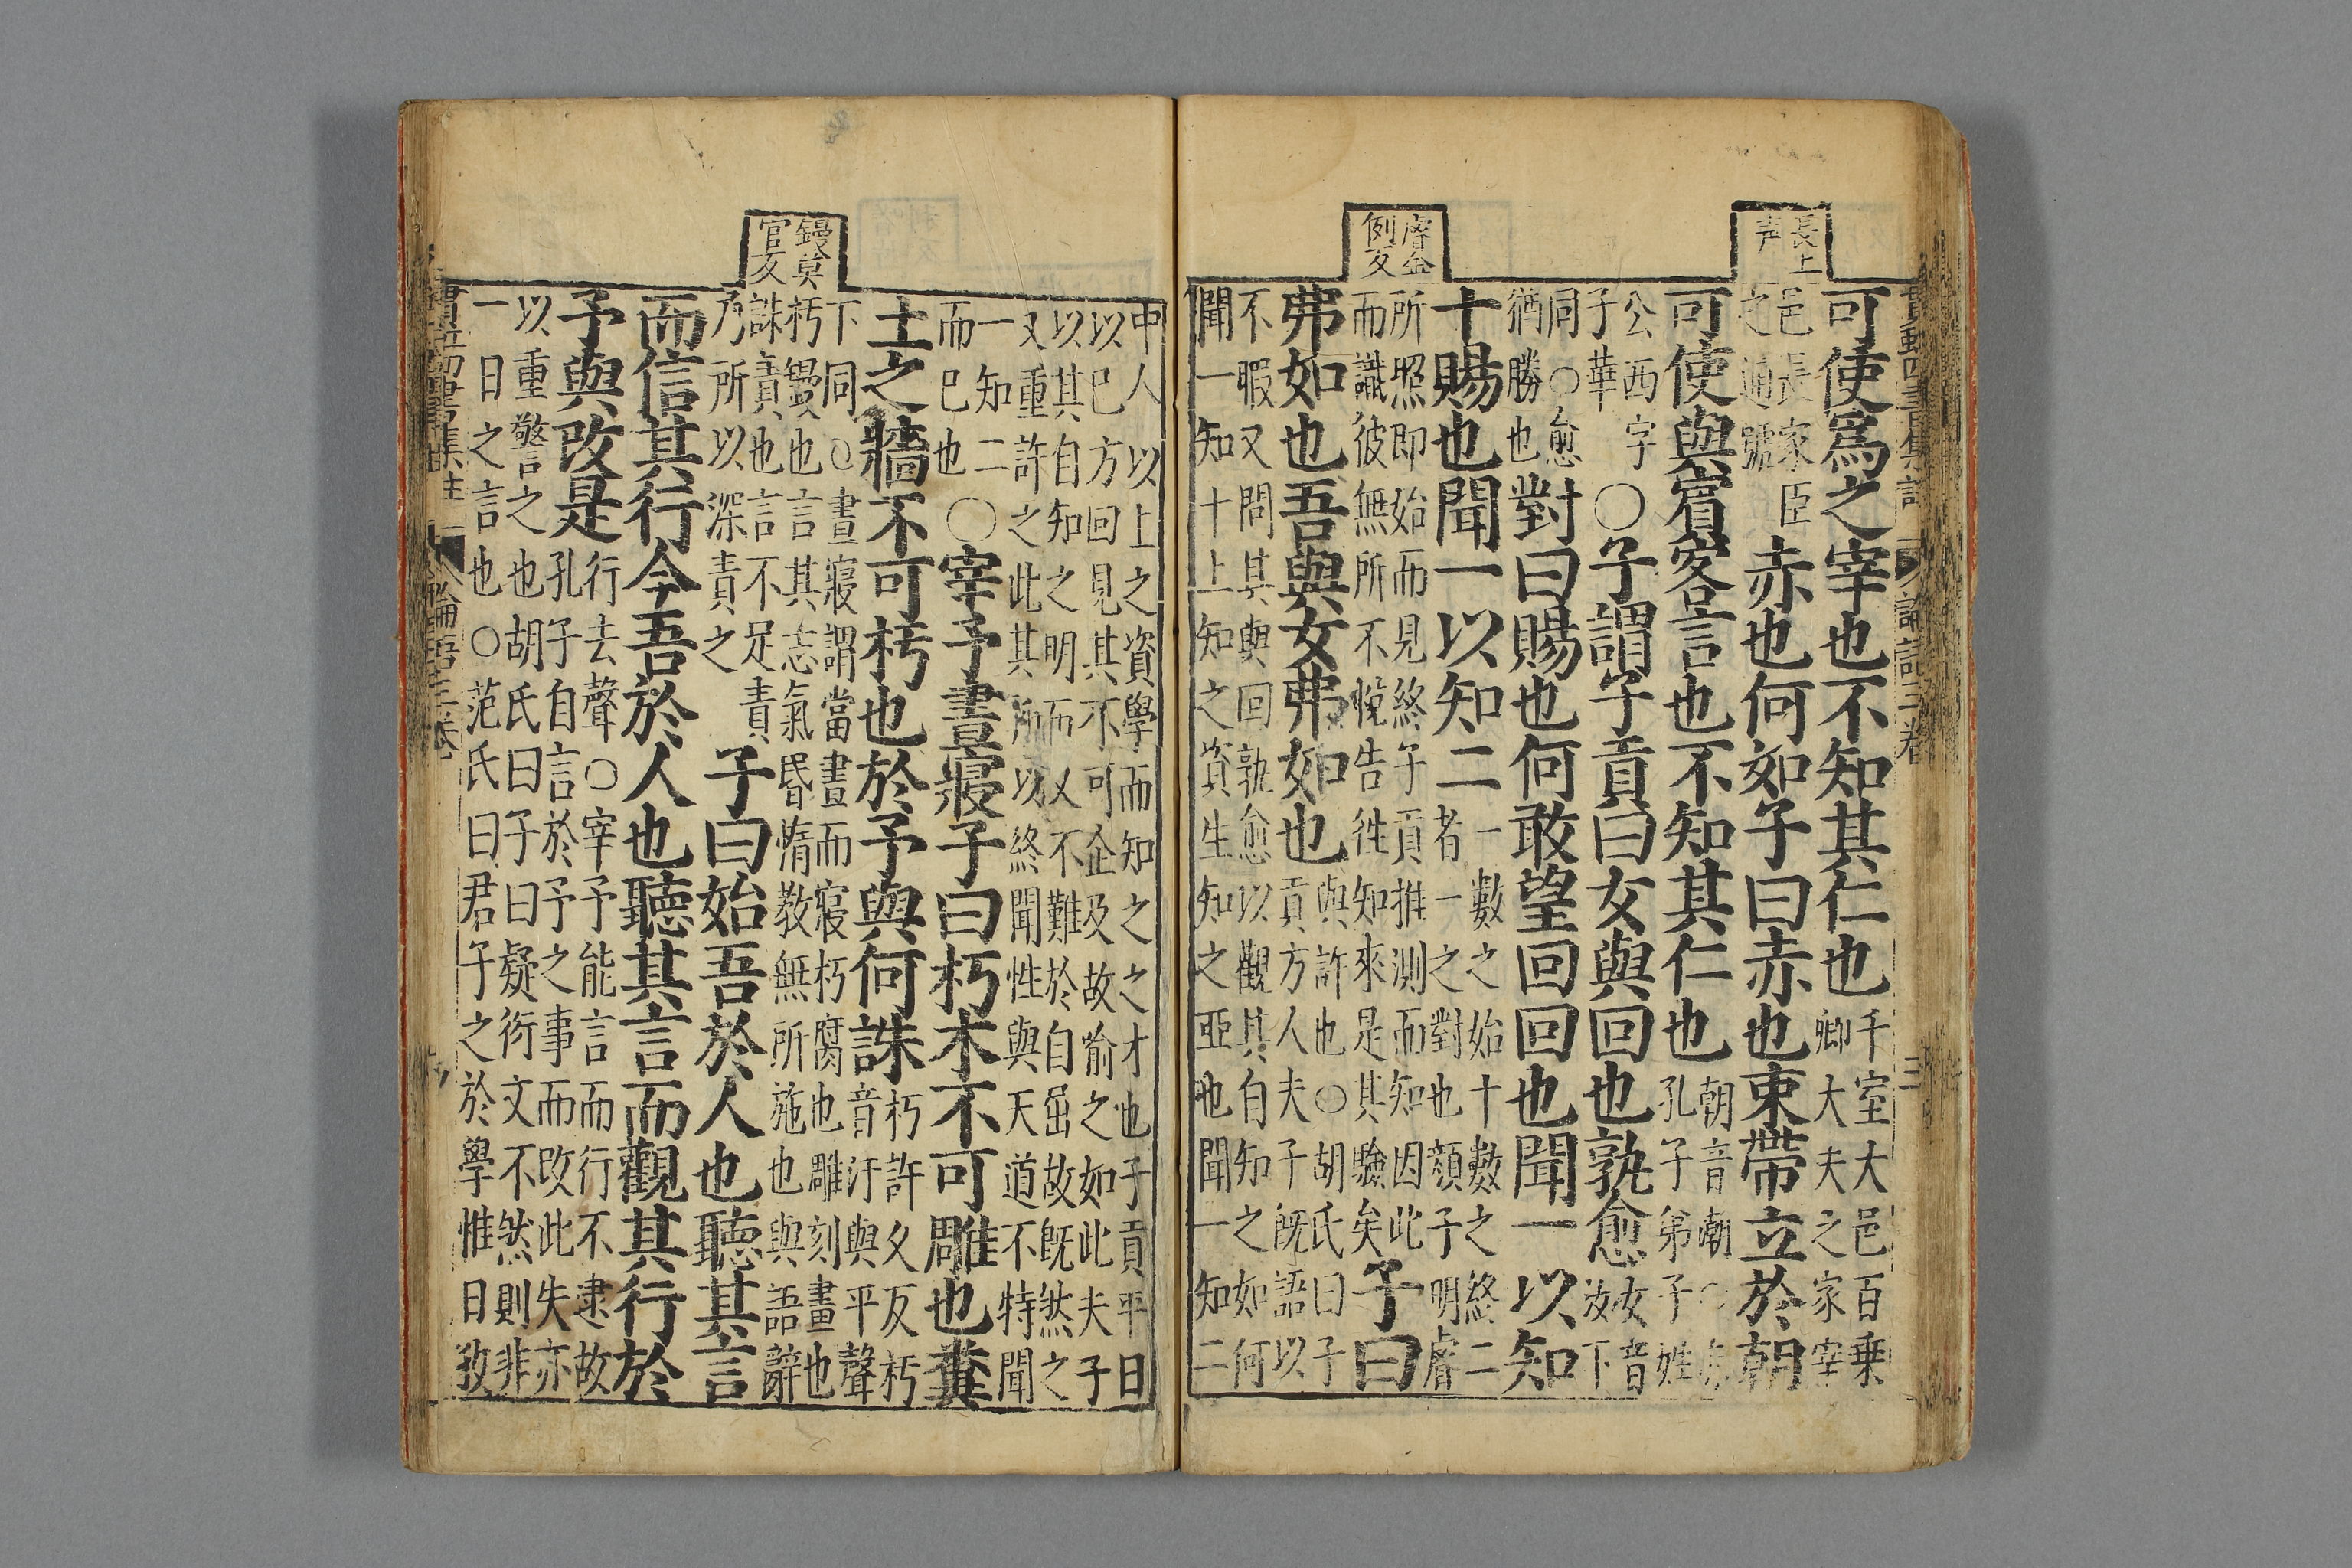 長上
声
睿俞
例反
可使爲之宰也不知其仁也千室大邑百乗
卿大夫之家宰
邑長家臣
之通號赤也何如子曰赤也束帶立於朝
可使與賓客言也不知其仁也朝音潮
孔子弟子姓
公西字
子華○子謂子貢曰女與回也孰愈女音
汝下
同○愈
猶勝也對曰賜也何敢望回回也聞一以知
十賜也聞一以知二一數之始十數之終二
者一之對也顔子明睿
所照即始而見終子貢推測而知因此
而識彼無所不悅告徃知來是其驗矣子曰
弗如也吾與女弗如也與許也○胡氏曰子
貢方人夫子旣語以
不暇又問其與回孰愈以觀其自知之如何
聞一知十上知之資生知之亞也聞一知二
論語三卷
三
鏝莫
官反
中人以上之資學而知之之才也子貢平日
以巳方回見其不可企及故喻之如此夫子
以其自知之明而又不難於自屈故旣然之
又重許之此其所以終聞性與天道不特聞
一知二
而巳也○宰予晝寢子曰朽木不可雕也糞
土之牆不可杇也於予與何誅朽許久反杇
音汙與平聲
下同○晝寢謂當晝而寢朽腐也雕刻畫也
杇鏝也言其志氣昬惰教無所施也與語辭
誅責也言不足責
乃所以深責之子曰始吾於人也聽其言
而信其行今吾於人也聽其言而觀其行於
予與改是行去聲○宰予能言而行不逮故
孔子自言於予之事而改此失亦
以重警之也胡氏曰子曰疑衍文不然則非
一日之言也○范氏曰君子之於學惟日孜
論語三卷